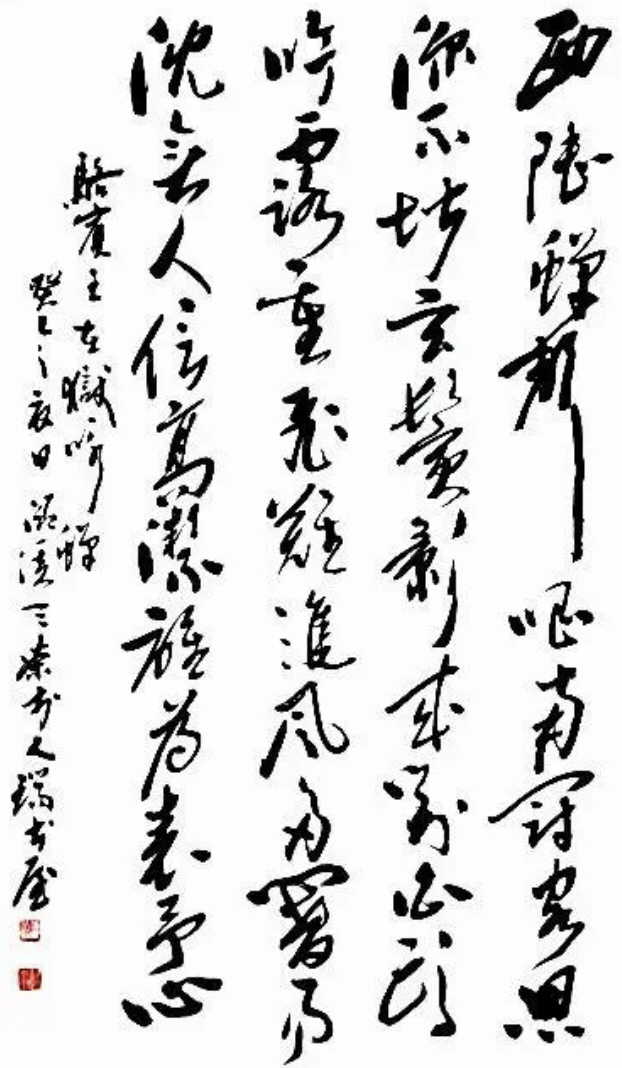 西陸蟬聲唱南冠客思
深不堪玄鬢影来對白頭
吟露重飛難進風多響易
沈無人信高潔誰為表予心
駱賓王在獄咏蟬
癸巳之夏日三榮於人瑞書屋